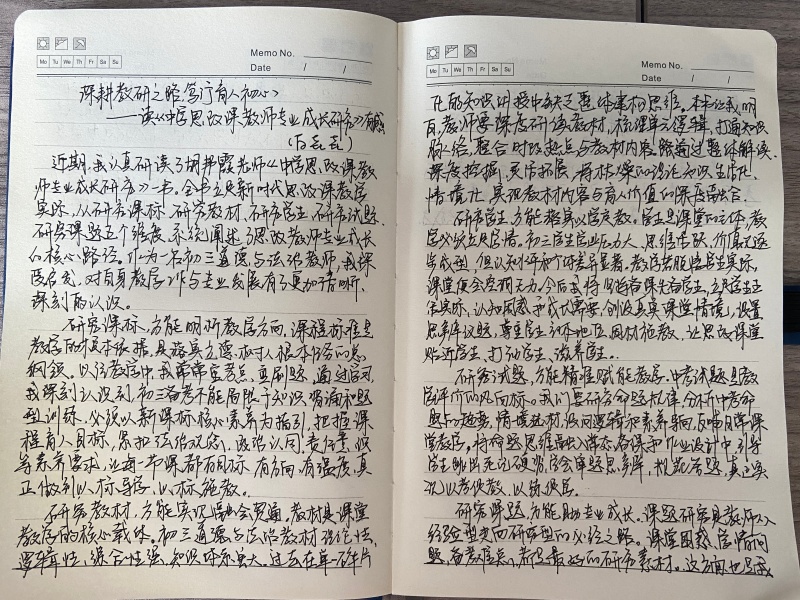 Mo Tu We Th Fr Sa Su
Memo No.
Date / /
深耕教研之路 笃行育人初心
——读《中学思政课教师专业成长研究》有感
近期,我认真研读了胡邦霞老师《中学思政课教
师专业成长研究》一书。全书立足新时代思政课教学
实际,从研究课标、研究教材、研究学生、研究试题、
研究课题五个维度,系统阐述了思政教师专业成长
的核心路径。作为一名初三道德与法治教师,我深
受启发,对自身教学工作与专业发展有了更加清晰、
深刻的认识。
研究课标,方能明晰教学方向。课程标准是
教学的根本依据,是落实立德树人根本任务的总
纲领。以往教学中,我常常重考点、重刷题,通过学习
我深刻认识到,初三备考不能局限于知识背诵和题
型训练,必须以新课标核心素养为指引,把握课
程育人目标,紧扣法治观念、政治认同、责任意识
等素养要求,让每一节课都有目标、有方向、有温度,真
正做到以标导学、以标施教。
研究教材,方能实现融会贯通。教材是课堂
教学的核心载体。初三道德与法治教材理论性、
逻辑性、综合性强,知识体系宏大。过去在单一碎片
Mo Tu We Th Fr Sa Su
Memo No.
Date / /
化的知识讲授中缺乏整体建构思维。本书让我明
白,教师要深度研读教材,梳理单元逻辑,打通知识
脉络,整合时政热点与教材内容,既要通过整体解读、
深度挖掘、灵活拓展,将枯燥的理论知识生活化、
情境化,实现教材内容与育人价值的深度融合。
研究学生,方能落实以学定教。学生是课堂的主体,教
学必须立足学情。初三学生学业压力大、思维活跃、价值观逐
步成型,但认知水平和个体差异显著。教学若脱离学生实际,
课堂便会空洞无力。今后我将坚持备课先备学生,立足学生
实际、认知困惑和成长需要,创设真实课堂情境,设置
思辨议题,尊重学生主体地位,因材施教,让思政课堂
贴近学生、打动学生、滋养学生。
研究试题,方能精准赋能教学。中考试题是教
学评价的风向标。我们要研究命题规律,分析中考命
题趋势、情境选材、设问逻辑和素养导向,反哺日常课
堂教学。将命题思维融入常态备课和作业设计中,引导
学生跳出死记硬背,学会审题思辨、规范答题,真正实
现以考促教、以练促学。
研究课题,方能助力专业成长。课题研究是教师从
经验型走向研究型的必经之路。课堂困惑、学情问
题、备考难点,都是最好的研究素材。这方面也是我